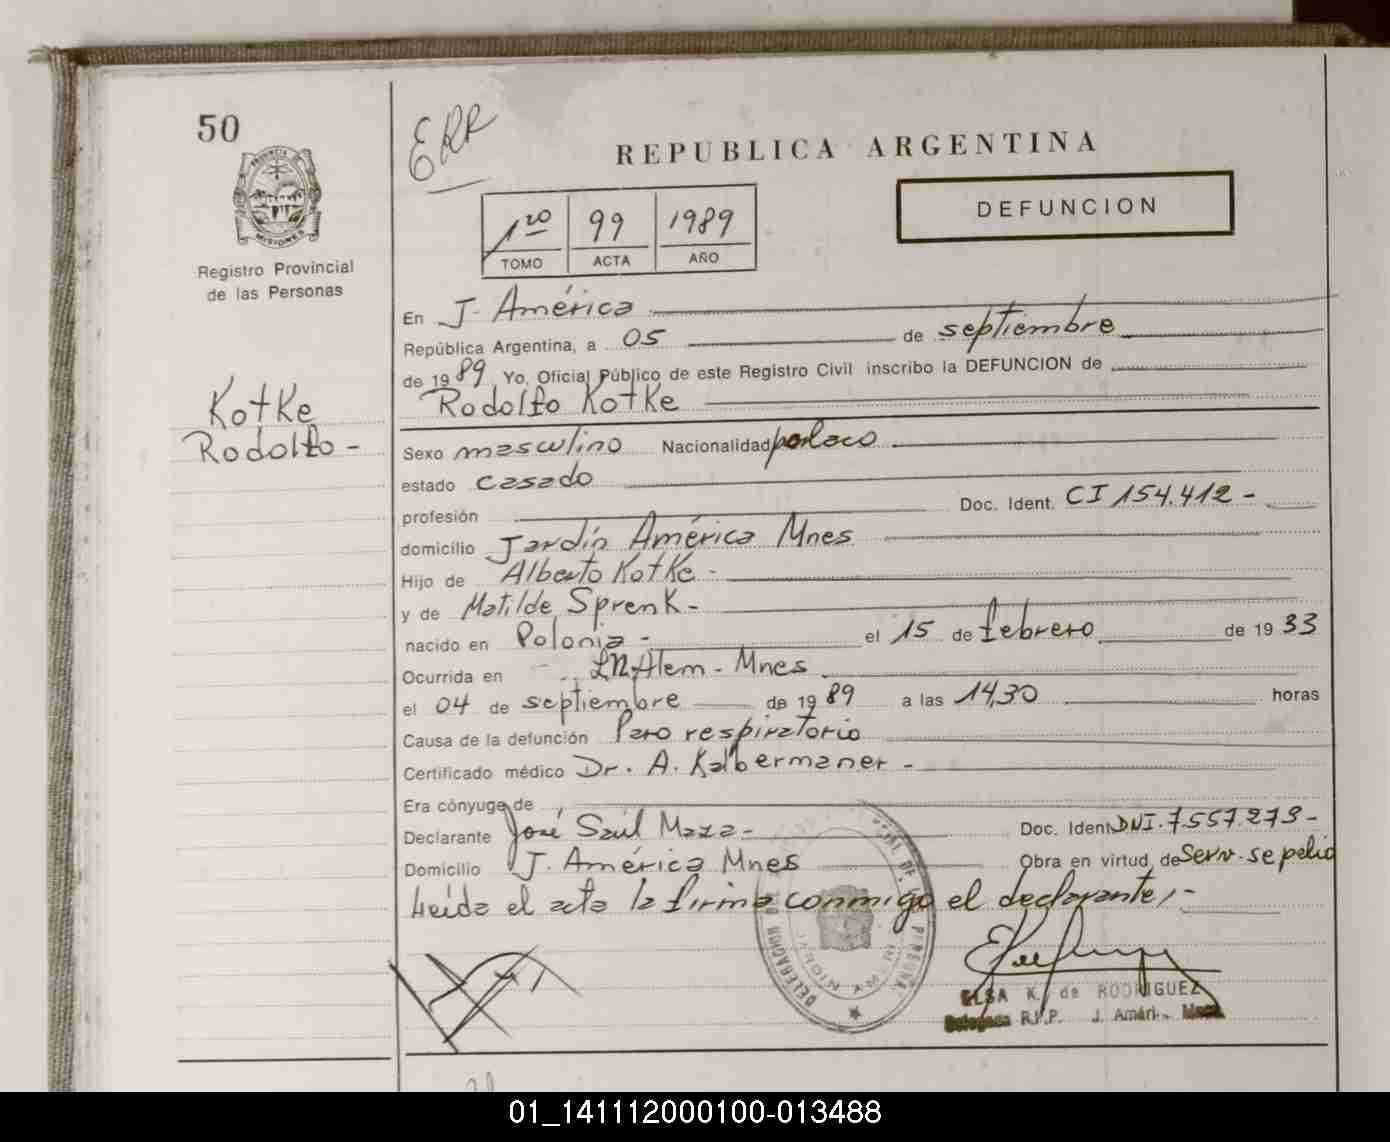 50
ERR
REPUBLICA ARGENTINA
DEFUNCION
1ro 99 1989
TOMO ACTA AÑO
PROVINCIA DE
MISIONES
Registro Provincial
de las Personas
En J. América
República Argentina, a 05 de septiembre
de 1989 Yo, Oficial Público de este Registro Civil inscribo la DEFUNCION de
Rodolfo Kotke
Kotke
Rodolfo -
Sexo masculino Nacionalidad polaco
estado casado
profesión Doc. Ident. CI 154.412 -
domicilio Jardín América Mnes
Hijo de Alberto Kotke -
y de Matilde Sprenk -
nacido en Polonia - el 15 de febrero de 1933
Ocurrida en LN Alem - Mnes
el 04 de septiembre de 1989 a las 14,30 horas
Causa de la defunción Paro respiratorio
Certificado médico Dr. A. Kalbermaner -
Era cónyuge de
Declarante José Saúl Maza - Doc. Ident DNI. 7.557.273 -
Domicilio J. América Mnes Obra en virtud de Serv. sepelio
Leída el acta la firma conmigo el declarante, -
DELEGACION DE
JARDIN AMERI
ELSA K. de RODRIGUEZ
Delegada R.P.P. J. Améri
01_141112000100-013488